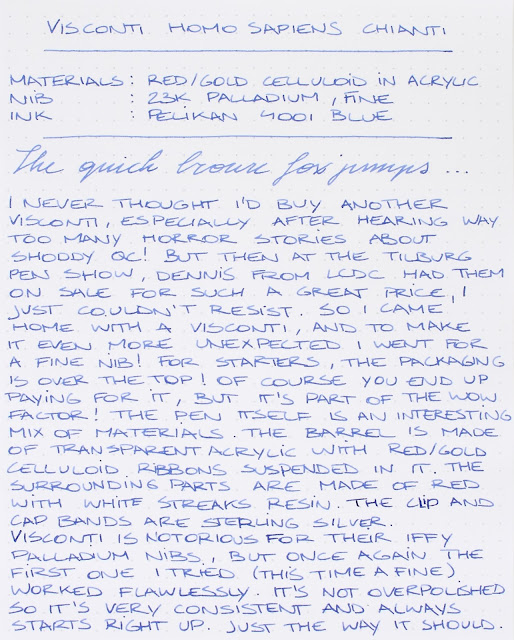 VISCONTI HOMO SAPIENS CHIANTI
MATERIALS : RED/GOLD CELLULOID IN ACRYLIC
NIB : 23K PALLADIUM, FINE
INK : PELIKAN 4001 BLUE
The quick brown fox jumps ...
I NEVER THOUGHT I'D BUY ANOTHER
VISCONTI, ESPECIALLY AFTER HEARING WAY
TOO MANY HORROR STORIES ABOUT
SHODDY QC! BUT THEN AT THE TILBURG
PEN SHOW, DENNIS FROM LCDC HAD THEM
ON SALE FOR SUCH A GREAT PRICE, I
JUST COULDN'T RESIST. SO I CAME
HOME WITH A VISCONTI, AND TO MAKE
IT EVEN MORE UNEXPECTED I WENT FOR
A FINE NIB! FOR STARTERS, THE PACKAGING
IS OVER THE TOP! OF COURSE YOU END UP
PAYING FOR IT, BUT IT'S PART OF THE WOW
FACTOR! THE PEN ITSELF IS AN INTERESTING
MIX OF MATERIALS. THE BARREL IS MADE
OF TRANSPARENT ACRYLIC WITH RED/GOLD
CELLULOID RIBBONS SUSPENDED IN IT. THE
SURROUNDING PARTS ARE MADE OF RED
WITH WHITE STREAKS RESIN. THE CLIP AND
CAP BANDS ARE STERLING SILVER.
VISCONTI IS NOTORIOUS FOR THEIR IFFY
PALLADIUM NIBS, BUT ONCE AGAIN THE
FIRST ONE I TRIED (THIS TIME A FINE)
WORKED FLAWLESSLY. IT'S NOT OVERPOLISHED
SO IT'S VERY CONSISTENT AND ALWAYS
STARTS RIGHT UP. JUST THE WAY IT SHOULD.